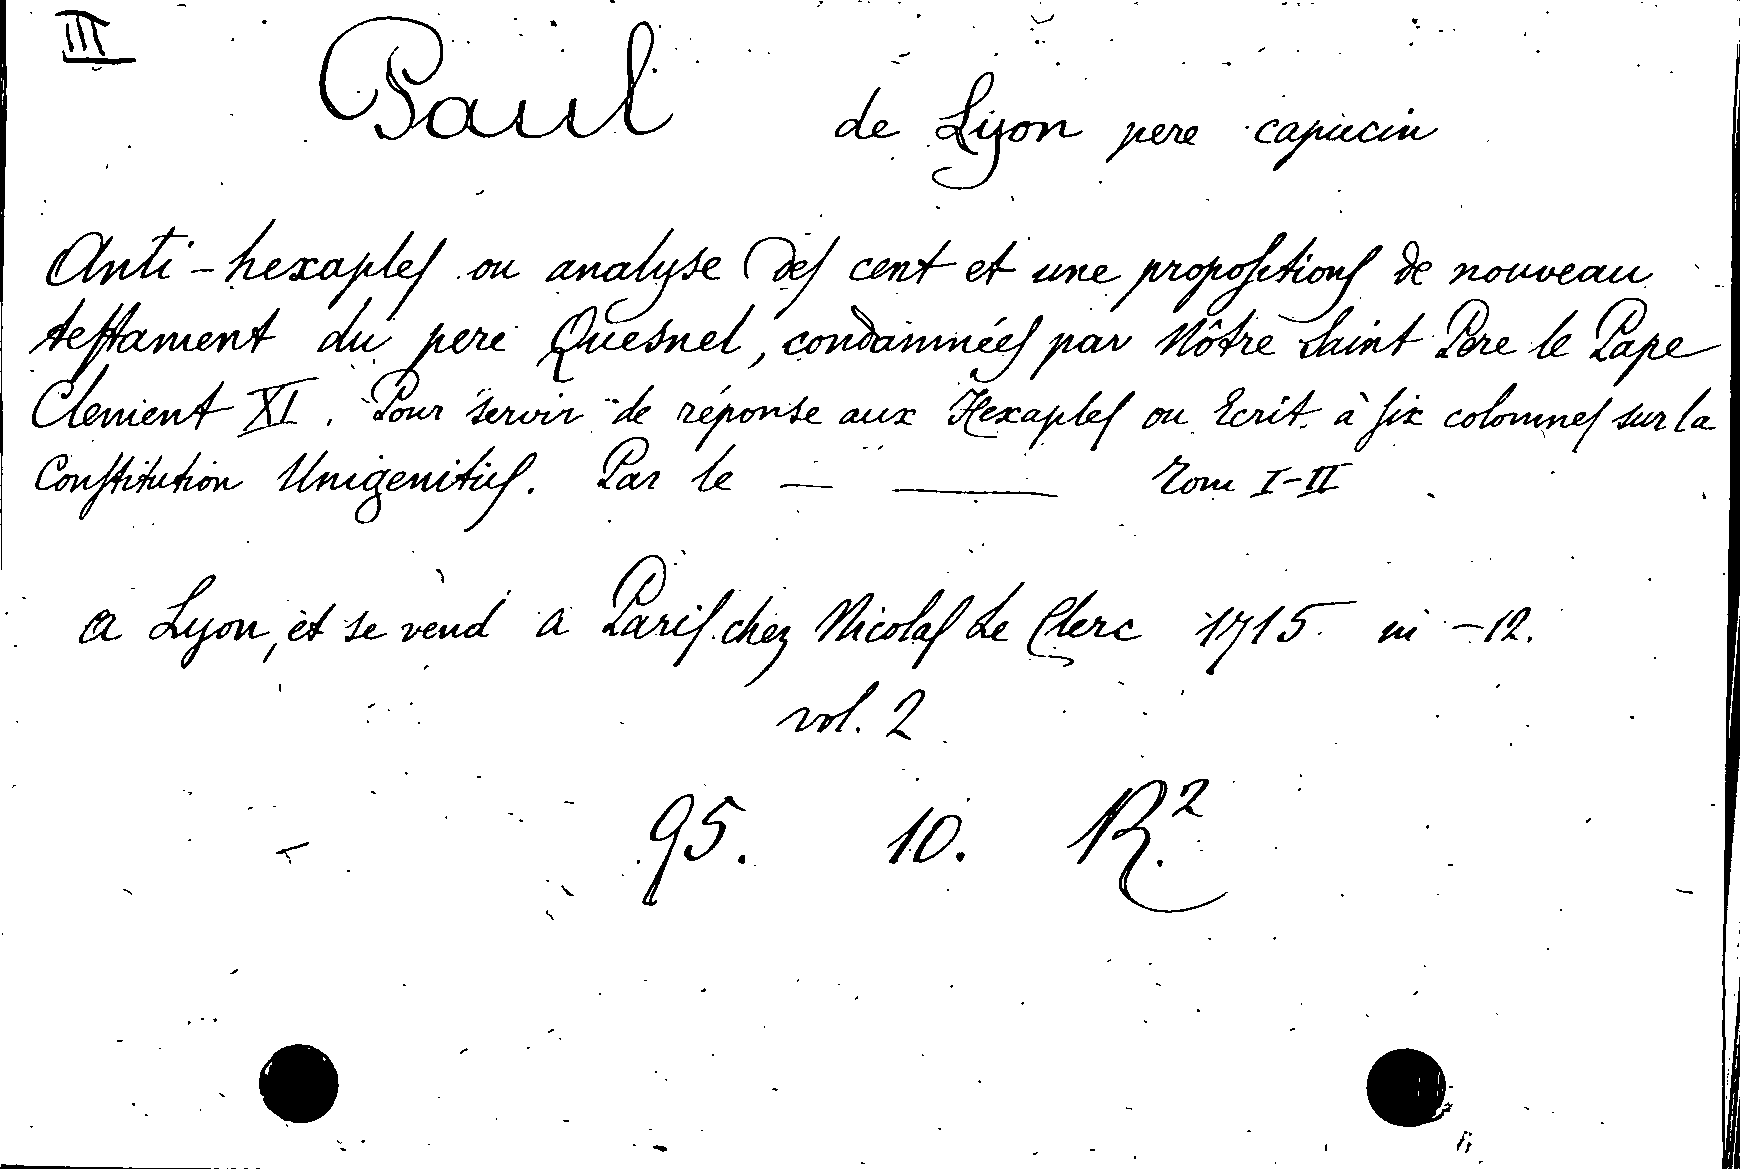 III
Paul de Lyon pere capucin
Anti-hexaples ou analyse des cent et une propositions de nouveau
testament du pere Quesnel, condamnées par Nôtre Saint Pere le Pape
Clement XI. Pour servir de réponse aux Hexaples ou Ecrit à six colomnes sur la
Constitution Unigenitus. Par le — — Tom I-II
a Lyon, et se vend a Paris chez Nicolas Le Clerc 1715. in -12.
vol. 2
95. 10. R.²